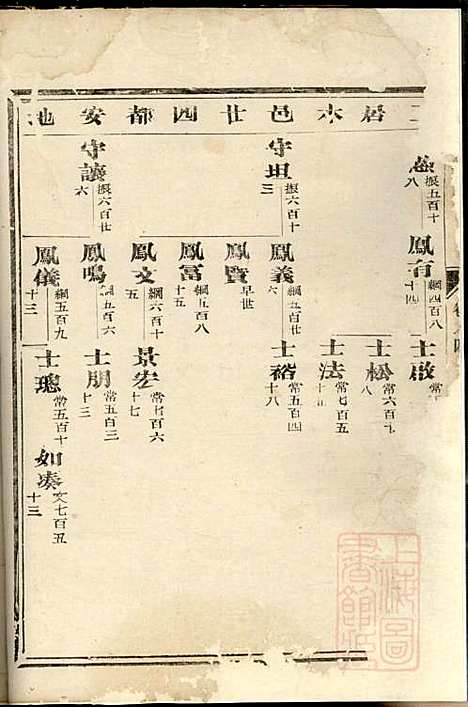 居木邑廿四都安地
振五百十八
鳳有 綱四百八十四
士啟 常
士松
士法 常七百五
守坦 振六百十三
鳳義
士裕 常五百四十八
鳳賢 早世
鳳富 綱五百八十五
鳳文 綱六百十五
景宏 常七百六十七
守讓 振六百廿六
鳳鳴 綱五百六十
士朋 常五百三十三
鳳儀 綱五百九十三
士璁 常五百十
如湊 文七百五十三
上海圖書館藏